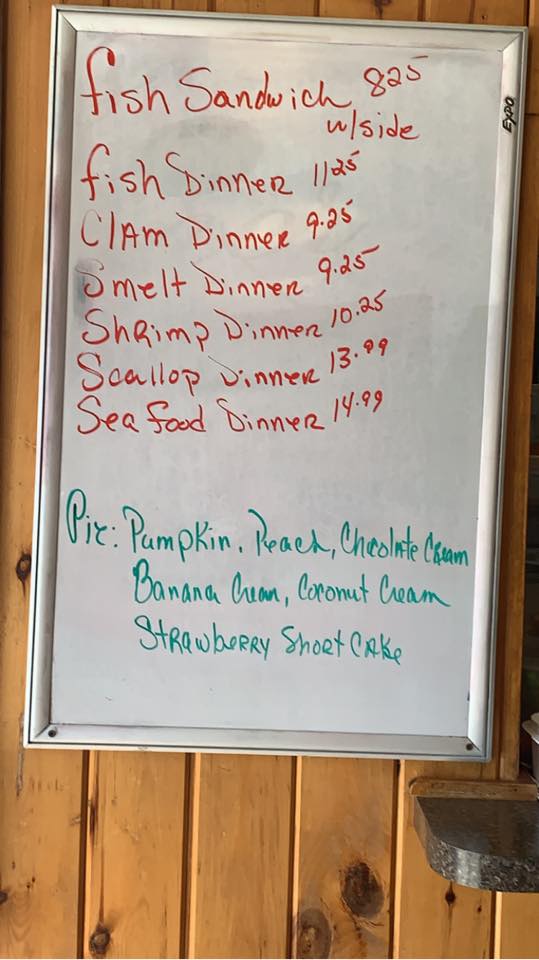 fish Sandwich 825
w/side
fish Dinner 1125
Clam Dinner 9.25
Smelt Dinner 9.25
Shrimp Dinner 10.25
Scallop Dinner 13.99
Sea food Dinner 14.99
Pie: Pumpkin, Peach, Chocolate Cream
Banana Cream, Coconut Cream
Strawberry Short Cake
EXPO